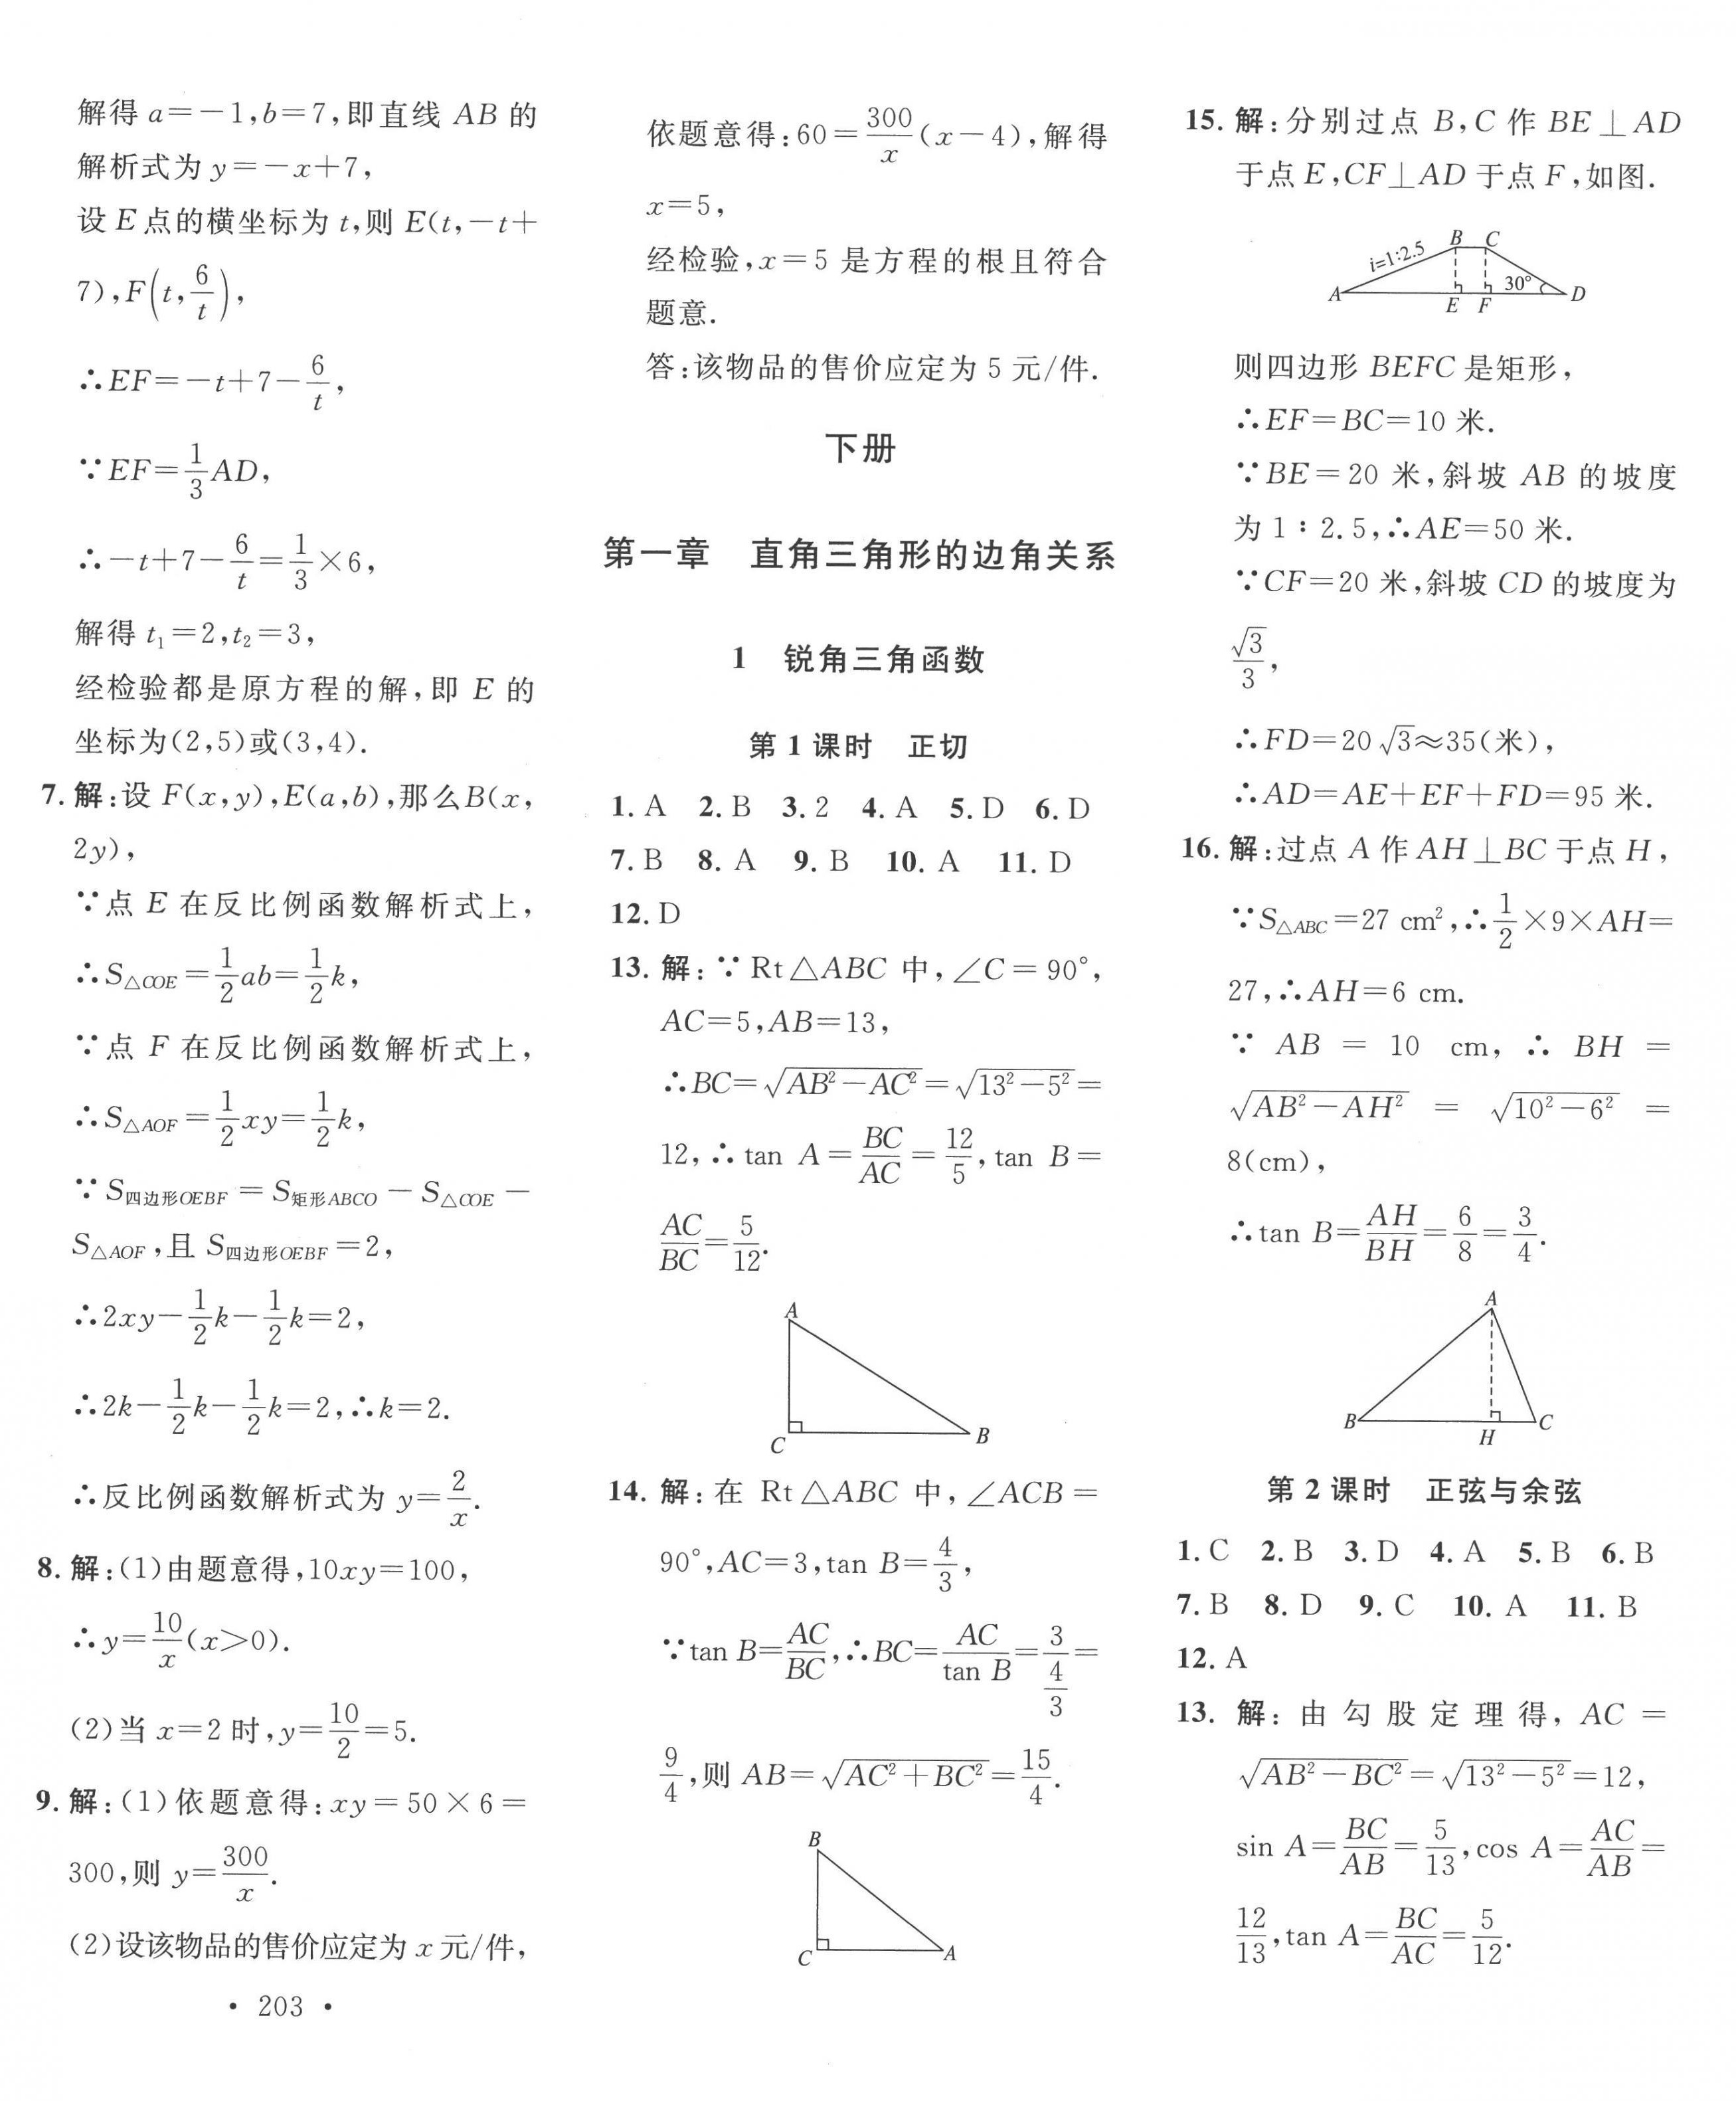 解得 a=-1,b=7,即直线 AB 的
解析式为 y=-x+7,
设 E 点的横坐标为 t,则 E(t,-t+
7),F(t,6/t),
∴EF=-t+7-6/t,
∵EF=1/3AD,
∴-t+7-6/t=1/3×6,
解得 t₁=2,t₂=3,
经检验都是原方程的解,即 E 的
坐标为(2,5)或(3,4).
7. 解:设 F(x,y),E(a,b),那么B(x,
2y),
∵点 E 在反比例函数解析式上,
∴S△COE=1/2ab=1/2k,
∵点 F 在反比例函数解析式上,
∴S△AOF=1/2xy=1/2k,
∵S四边形OEBF=S矩形ABCO-S△COE-
S△AOF,且 S四边形OEBF=2,
∴2xy-1/2k-1/2k=2,
∴2k-1/2k-1/2k=2,∴k=2.
∴反比例函数解析式为 y=2/x.
8. 解:(1)由题意得,10xy=100,
∴y=10/x(x>0).
(2)当 x=2 时,y=10/2=5.
9. 解:(1)依题意得:xy=50×6=
300,则 y=300/x.
(2)设该物品的售价应定为 x 元/件,
• 203 •
依题意得:60=300/x(x-4),解得
x=5,
经检验,x=5 是方程的根且符合
题意.
答:该物品的售价应定为 5 元/件.
下册
第一章 直角三角形的边角关系
1 锐角三角函数
第 1 课时 正切
1. A 2. B 3. 2 4. A 5. D 6. D
7. B 8. A 9. B 10. A 11. D
12. D
13. 解:∵Rt△ABC 中,∠C=90°,
AC=5,AB=13,
∴BC=√(AB²-AC²)=√(13²-5²)=
12,∴tan A=BC/AC=12/5,tan B=
AC/BC=5/12.
A
C
B
14. 解:在 Rt△ABC 中,∠ACB=
90°,AC=3,tan B=4/3,
∵tan B=AC/BC,∴BC=AC/tan B=3/(4/3)=
9/4,则 AB=√(AC²+BC²)=15/4.
B
C
A
15. 解:分别过点 B,C 作 BE⊥AD
于点 E,CF⊥AD 于点 F,如图.
B C
i=1:2.5
30°
A
D
E F
则四边形 BEFC 是矩形,
∴EF=BC=10 米.
∵BE=20 米,斜坡 AB 的坡度
为 1∶2.5,∴AE=50 米.
∵CF=20 米,斜坡 CD 的坡度为
√3/3,
∴FD=20√3≈35(米),
∴AD=AE+EF+FD=95 米.
16. 解:过点 A 作 AH⊥BC 于点 H,
∵S△ABC=27 cm²,∴1/2×9×AH=
27,∴AH=6 cm.
∵ AB = 10 cm, ∴ BH =
√(AB²-AH²) = √(10²-6²) =
8(cm),
∴tan B=AH/BH=6/8=3/4.
A
B
C
H
第 2 课时 正弦与余弦
1. C 2. B 3. D 4. A 5. B 6. B
7. B 8. D 9. C 10. A 11. B
12. A
13. 解:由勾股定理得,AC=
√(AB²-BC²)=√(13²-5²)=12,
sin A=BC/AB=5/13,cos A=AC/AB=
12/13,tan A=BC/AC=5/12.